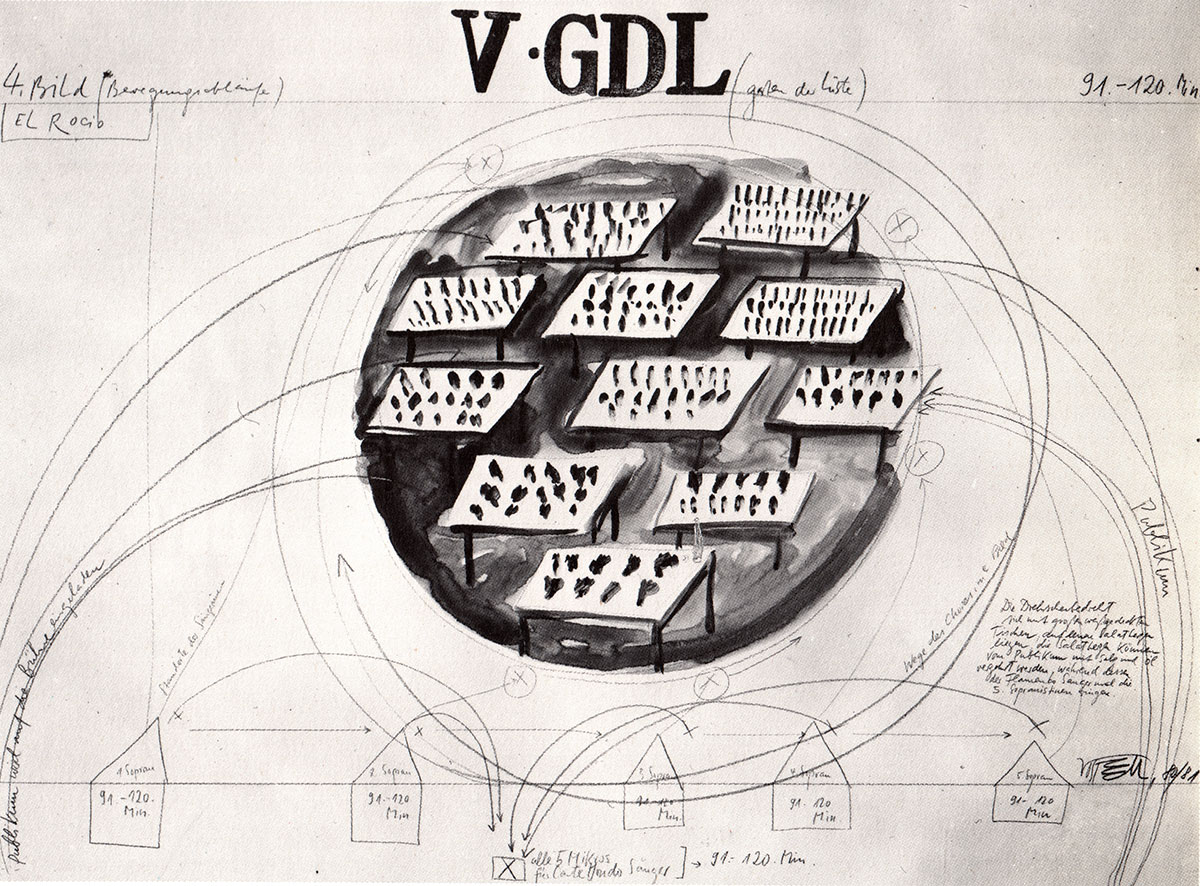 V·GDL
(garten der lüste)
4. Bild (Bewegungsabläufe)
91.-120. Min
EL Rocio
Publikum
Publikum wird auf die Bühne eingeladen
Standorte der Sänger
Wege des Chores, im 4. Bild
Die Drehscheibe dreht
sich mit großen weißgedeckten
Tischen, auf denen Salatköpfe
liegen. die Salatköpfe können
vom Publikum mit Salz und Öl
während dessen
der Flamenco Sänger und die
5. Sopranistinnen singen
1 Sopran
91.-120.
Min.
2. Sopran
91.-120
Min.
3. Sopran
91-120
Min.
4. Sopran
91-120
Min.
5 Sopran
91-120
Min.
80/81
X
alle 5 Mikros
für Cante Jondo Sänger
→ 91.-120. Min.